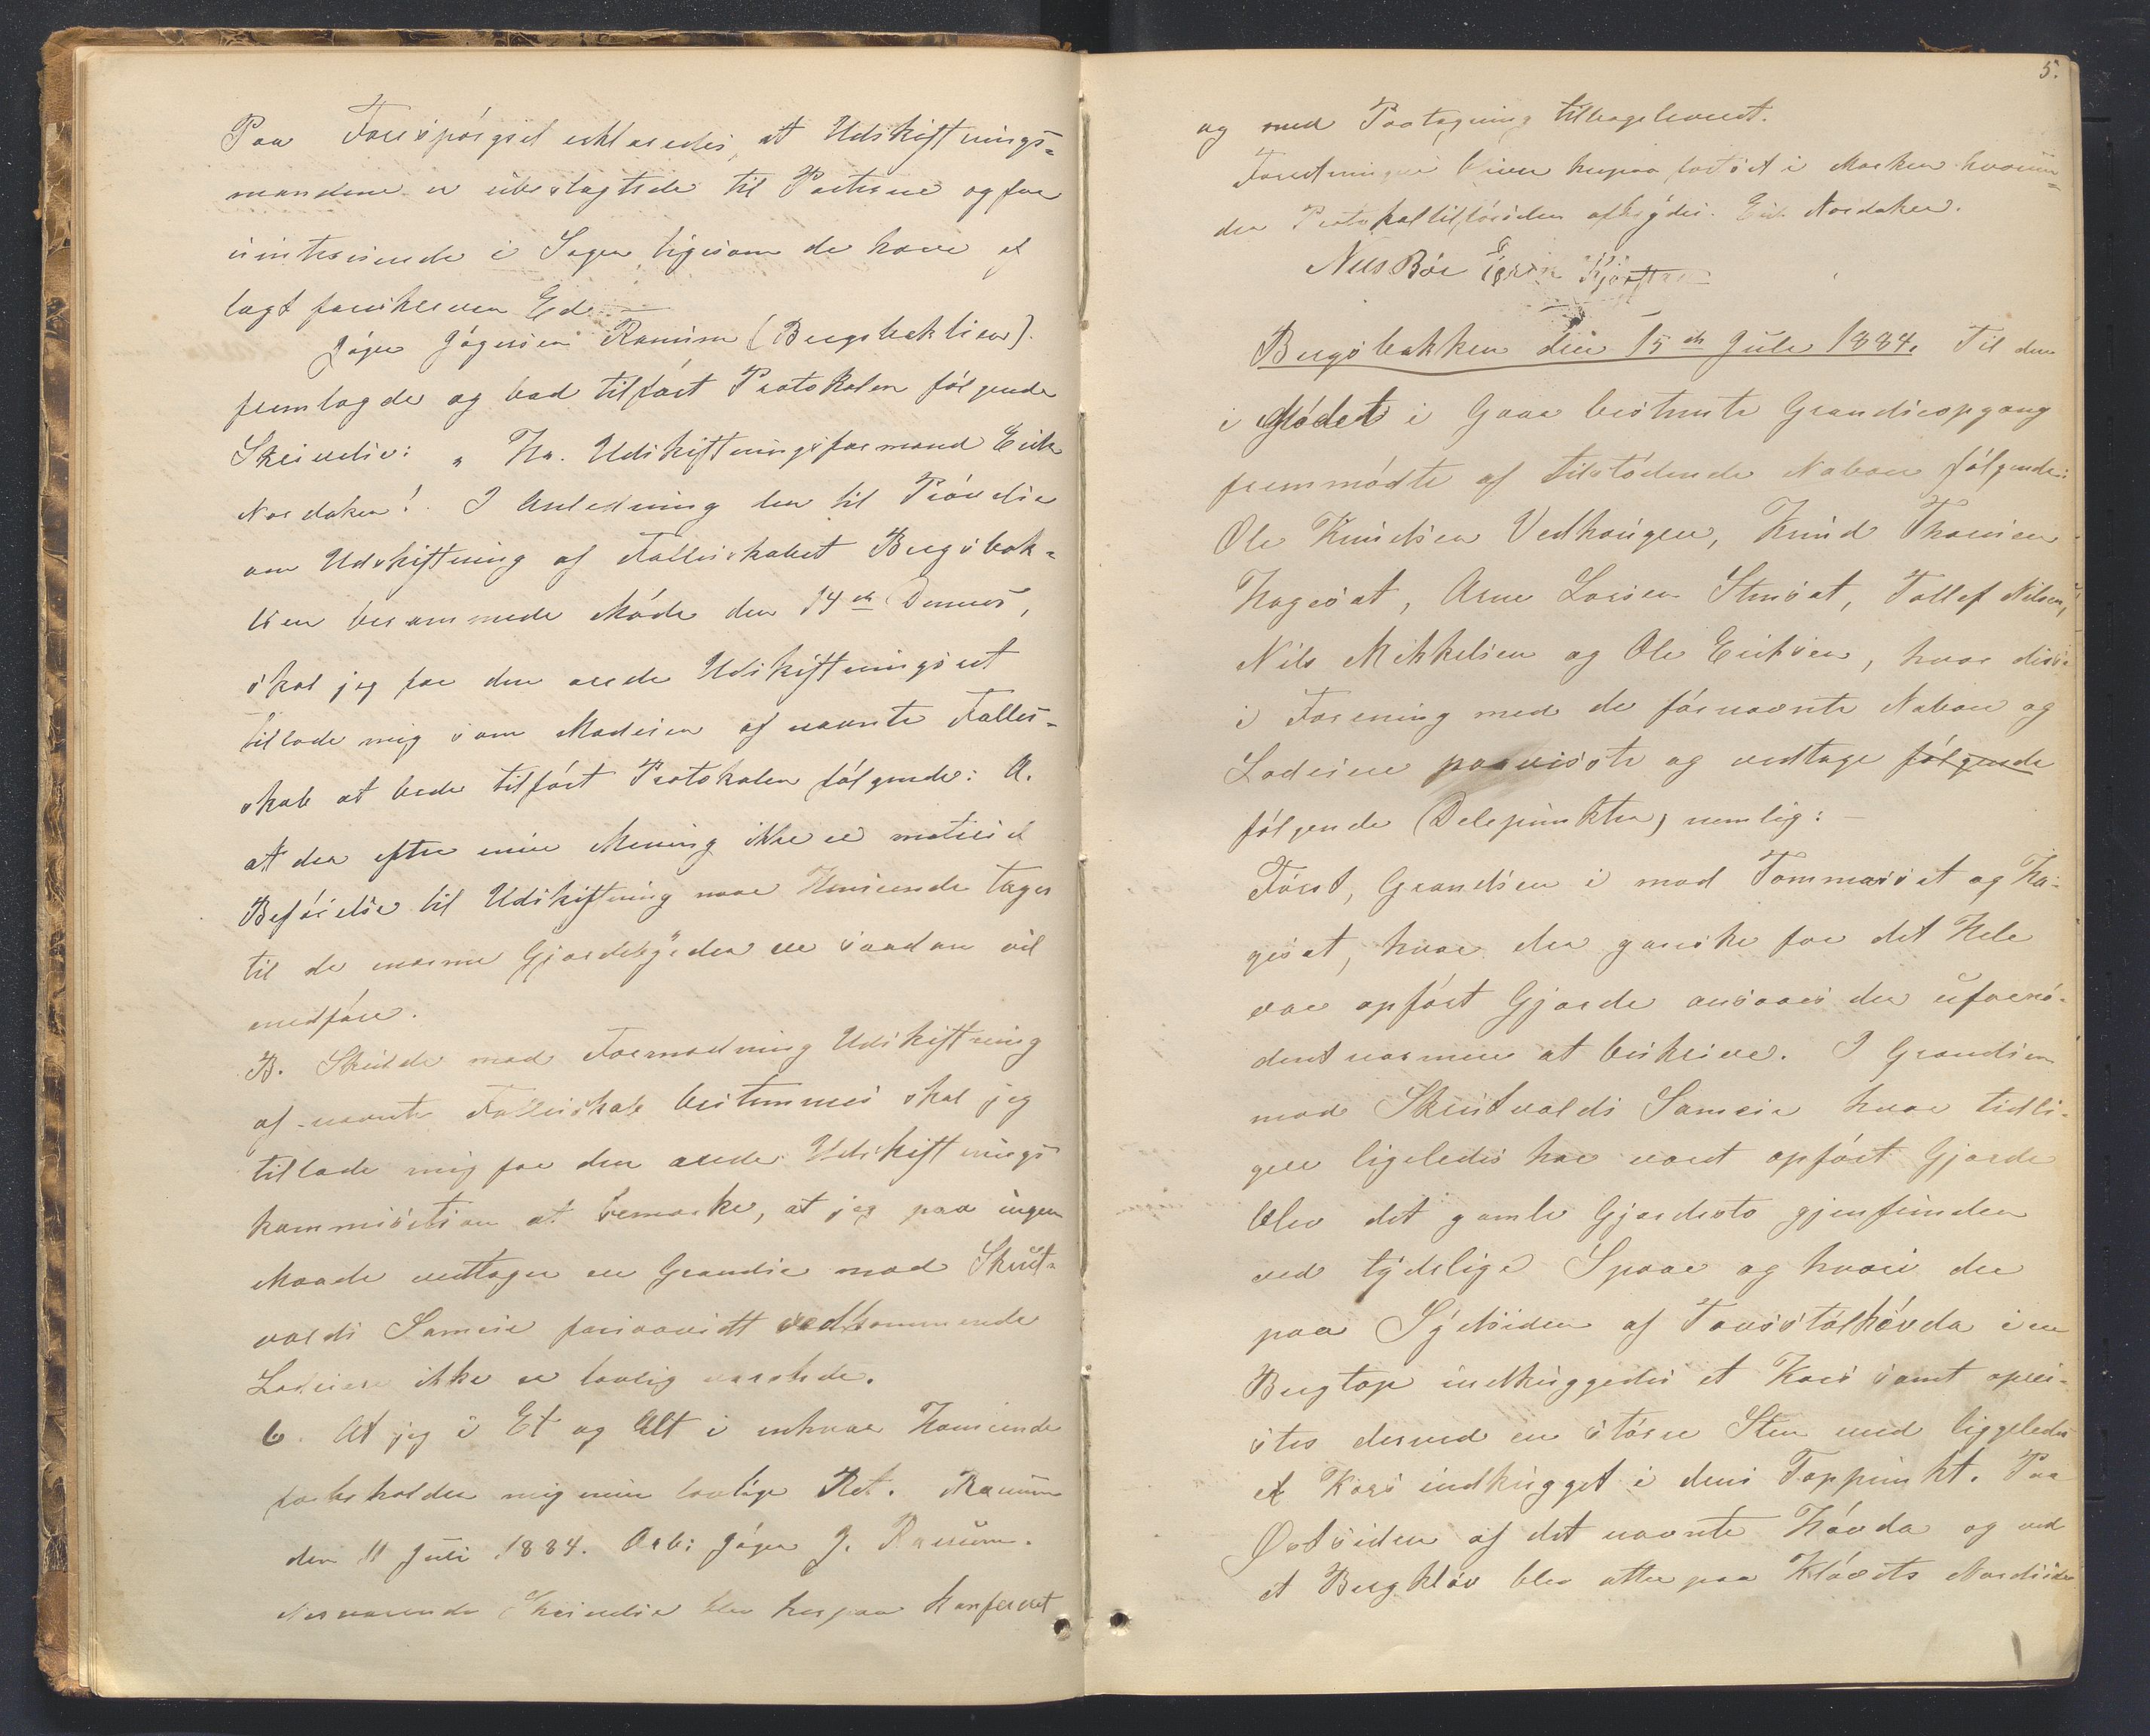 Paa Forespørgsel erklæredes, at Udskiftnings=
mændene er ubeslægtede til Parterne og for
uinteresserede i Sagen ligesom de have af
lagt foreskreven Ed. —
Jøger Jøgersen Ranum (Bergsbaklien).
fremlagde og bad tilført Protokolen følgende
Skrivelse: „ Hr. Udskiftningsformand Erik
Nordaker! I Anledning den til Prøvelse
om Udskiftning af Fælleskabet Bergsbak=
lien berammede Møde den 14de Dennes,
skal jeg for den ærede Udskiftningsret
tillade mig som Medeier af nævnte Fælles=
skab at bede tilført Protokolen følgende: A.
at der efter min Mening ikke er motiveret
Beføielse til Udskiftning naar Hensynde tages
til de enorme Gjærdebyrder en saadan vil
medføre.
B. Skulde mod Formodning Udskiftning
af nævnte Fælleskab bestemmes skal jeg
tillade mig for den ærede Udskiftnings
kommission at bemærke, at jeg paa ingen
Maade vedtager en Grændse mod Skrut=
volds Sameie forsaavidt vedkommende
Lodeiere ikke er lovlig varslede.
6. At jeg i Et og Alt i enhver Henseende
forbeholder mig min lovlige Ret. Ranum
den 11 Juli 1884. Ærb: Jøger J. Ranum.
Nærværende Skrivelse blev herpaa konfereret
5.
og med Paategning tilbageleveret.
Forretningen blev herpaa fortsat i Marken hvorun=
der Protokoltilførselen afbrydes. Erik Nordaker.
Nils Bøe
Bergsbakken den 15de Juli 1884. Til den
i Mødet i Gaar bestemte Grændseopgang
fremmødte af tilstødende Naboer følgende:
Ole Knudsen Vedhaugen, Knud Thoresen
Hagesæt, Arne Larsen Stensæt, Tollef Nilsen,
Nils Mikkelsen og Ole Eriksen, hvor disse
i Forening med de førnævnte Naboer og
Lodeiere paaviste og vedtage følgende
følgende Delepunkter, nemlig: —
Først, Grændsen i mod Tommassæt og Ha=
gesæt, hvor der ganske for det Hele
var opført Gjærde ansaaes den ufornø=
dent nærmere at beskrive. I Grændsen
mod Skrutvolds Sameie hvor tidli=
gere ligeledes har været opført Gjærde
blev det gamle Gjærdesto gjenfunden
ved tydelige Spoer og hvori der
paa Sydsiden af Tousstølhøvda i en
Bergtop indhuggedes et Kors samt opreis=
stes derved en større Sten med liggeledes
et Kors indhugget i dens Toppunkt. Paa
Østsiden af det nævnte Høvda og ved
et Bergkløv blev atter paa Kløvets Nordside